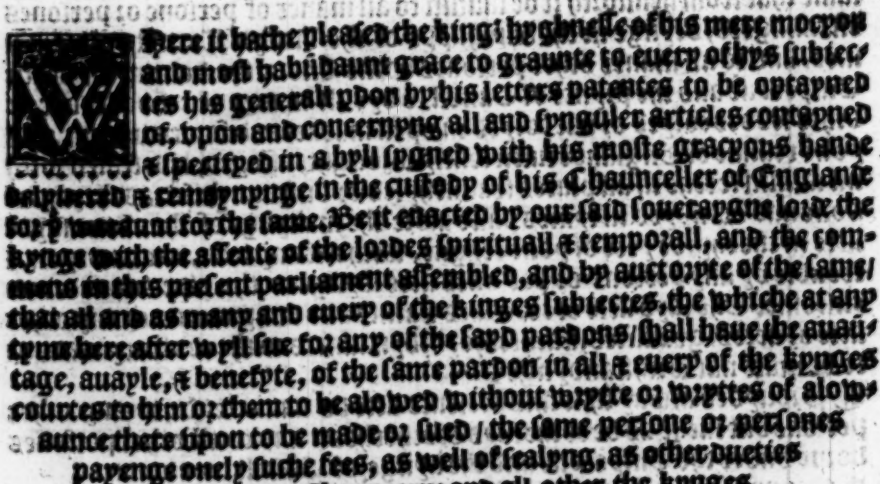 WHere it hathe pleased the kings hyghnesse of his mere mocyon
and most habūdaunt grace to graunte to euery of hys subiec⸗
tes his generall pdon by his letters patentes to be optayned
of, vpon and concernyng all and synguler articles contayned
& specifyed in a byll sygned with his moste gracyous hande
delyuered & remaynynge in the custody of his Chaunceller of Englande
for yͤ waraunt for the same. Be it enacted by our said soueraygne lorde the
kynge with the assente of the lordes spirituall & temporall, and the com⸗
mens in this present parliament assembled, and by auctoryte of the same/
that all and as many and euery of the kinges subiectes, the whiche at any
tyme here after wyll sue for any of the sayd pardons/shall haue the auaū⸗
tage, auayle, & benefyte, of the same pardon in all & euery of the kynges
courtes to him or them to be alowed without wrytte or wryttes of alow⸗
aunce thete vpon to be made or sued / the same persone or persones
payenge onely suche fees, as well of sealyng, as other dueties
and all other the kynges